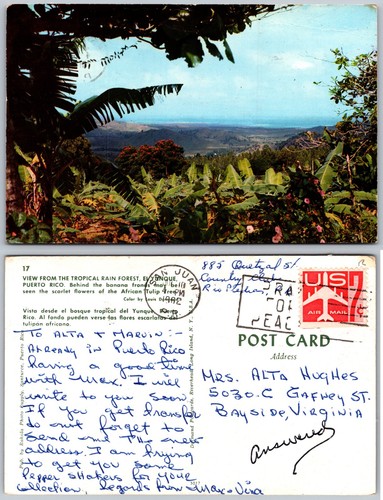 17
VIEW FROM THE TROPICAL RAIN FOREST, EL YUNQUE,
PUERTO RICO. Behind the banana fronds may be
seen the scarlet flowers of the African Tulip Tree.
Color by Louis
Vista desde el bosque tropical del Yunque
Rico. Al fondo pueden verse las flores escarlatas del
tulipan africano.
SAN JUAN
PM
1962
885 Quetzal St
Country Club
Rio Piedras
PRAY
FOR
PEACE
US
7¢
AIR MAIL
POST CARD
Address
To ALTA & MARU:-
Already in Puerto Rico
having a good time
with Max. I will
write to you soon.
If you get transfer
do not forget to
send me the new
address. I am trying
to get you some
Pepper shakers for your
collection. Regards from Max-Vira
MRS. ALTA HUGHES
5030. C GAFNEY ST.
BAYSIDE, VIRGINIA
Answered